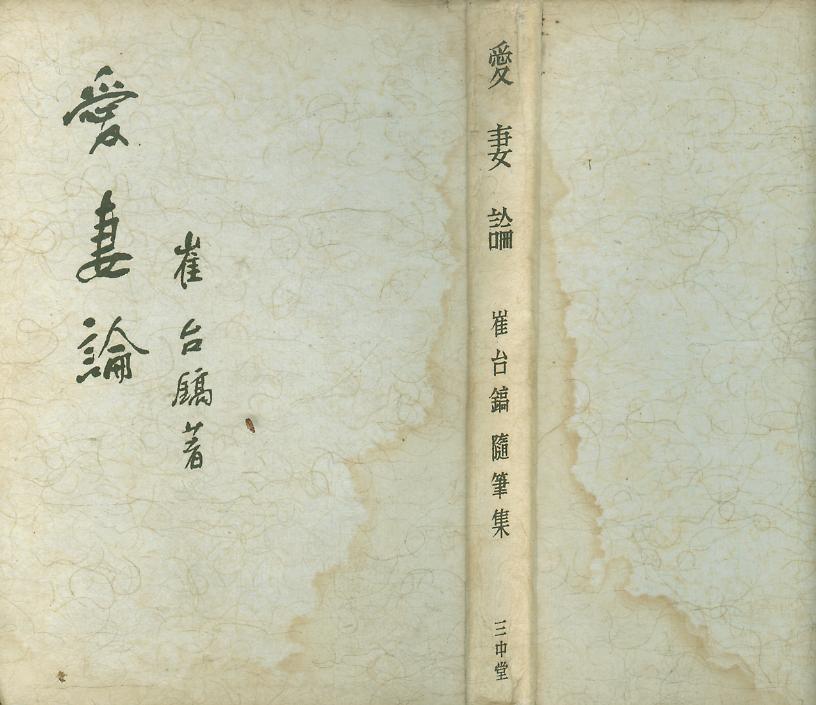 愛妻論
崔台鎬著
愛妻論
崔台鎬隨筆集
三中堂